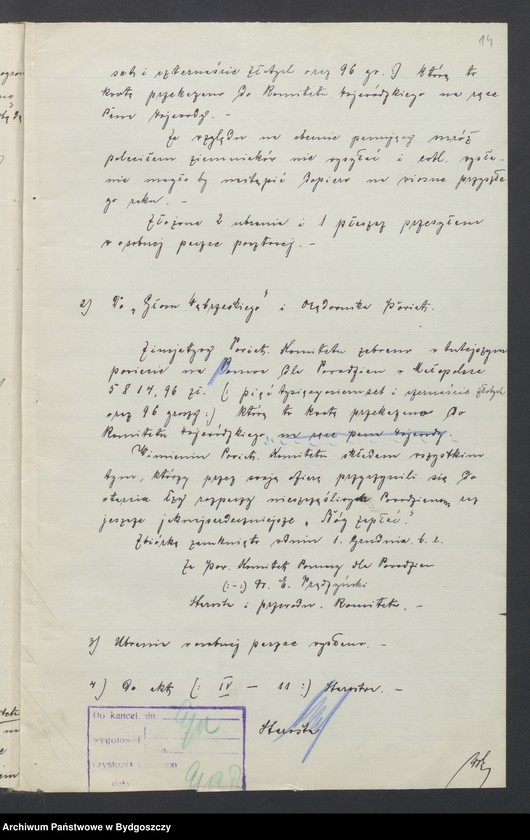 14
set i czternaście złotych oraz 96 gr. :) którą to
kwotę przekazano do Komitetu Wojewódzkiego na ręce
Pana Wojewody. –
Ze względu na obecnie panujący mróz
poleciłem ziemniaków nie wysyłać i ewtl. wysła-
nie mogło by nastąpić dopiero na wiosnę przyszłe-
go roku. –
Złożone 2 ubrania i 1 płaszcz przesyłam
w osobnej paczce pocztowej. –
2) Do „Głosu Wąbrzeskiego" i Orędownika Powiat.
Powiat. Komitetu zebrano w tutejszym
powiecie na Pomoc dla Powodzian w Małopolsce
5814,96 zł. (: pięć tysięcy osiemset i czternaście złotych
oraz 96 groszy :) którą to kwotę przekazano do
Komitetu Wojewódzkiego na ręce pana Wojewody.
W imieniu Powiat. Komitetu składam wszystkim
tym, którzy przez swoją ofiarę przyczynili się do
otarcia łzy rozpaczy nieszczęśliwych Powodzianom raz
jeszcze jaknajserdeczniejsze „Bóg zapłać".
Zbiórkę zamknięto z dniem 1. Grudnia b. r.
Za Pow. Komitet Pomocy dla Powodzian
(:–:) Dr. E. Prądzyński
Starosta i przewodn. Komitetu. –
3) Ubrania w osobnej paczce wysłano. –
4) Do akt (: IV – 11 :) Starostwa. –
Starosta
Do kancel. dn.
wygotował
czystopis
dn.
Archiwum Państwowe w Bydgoszczy